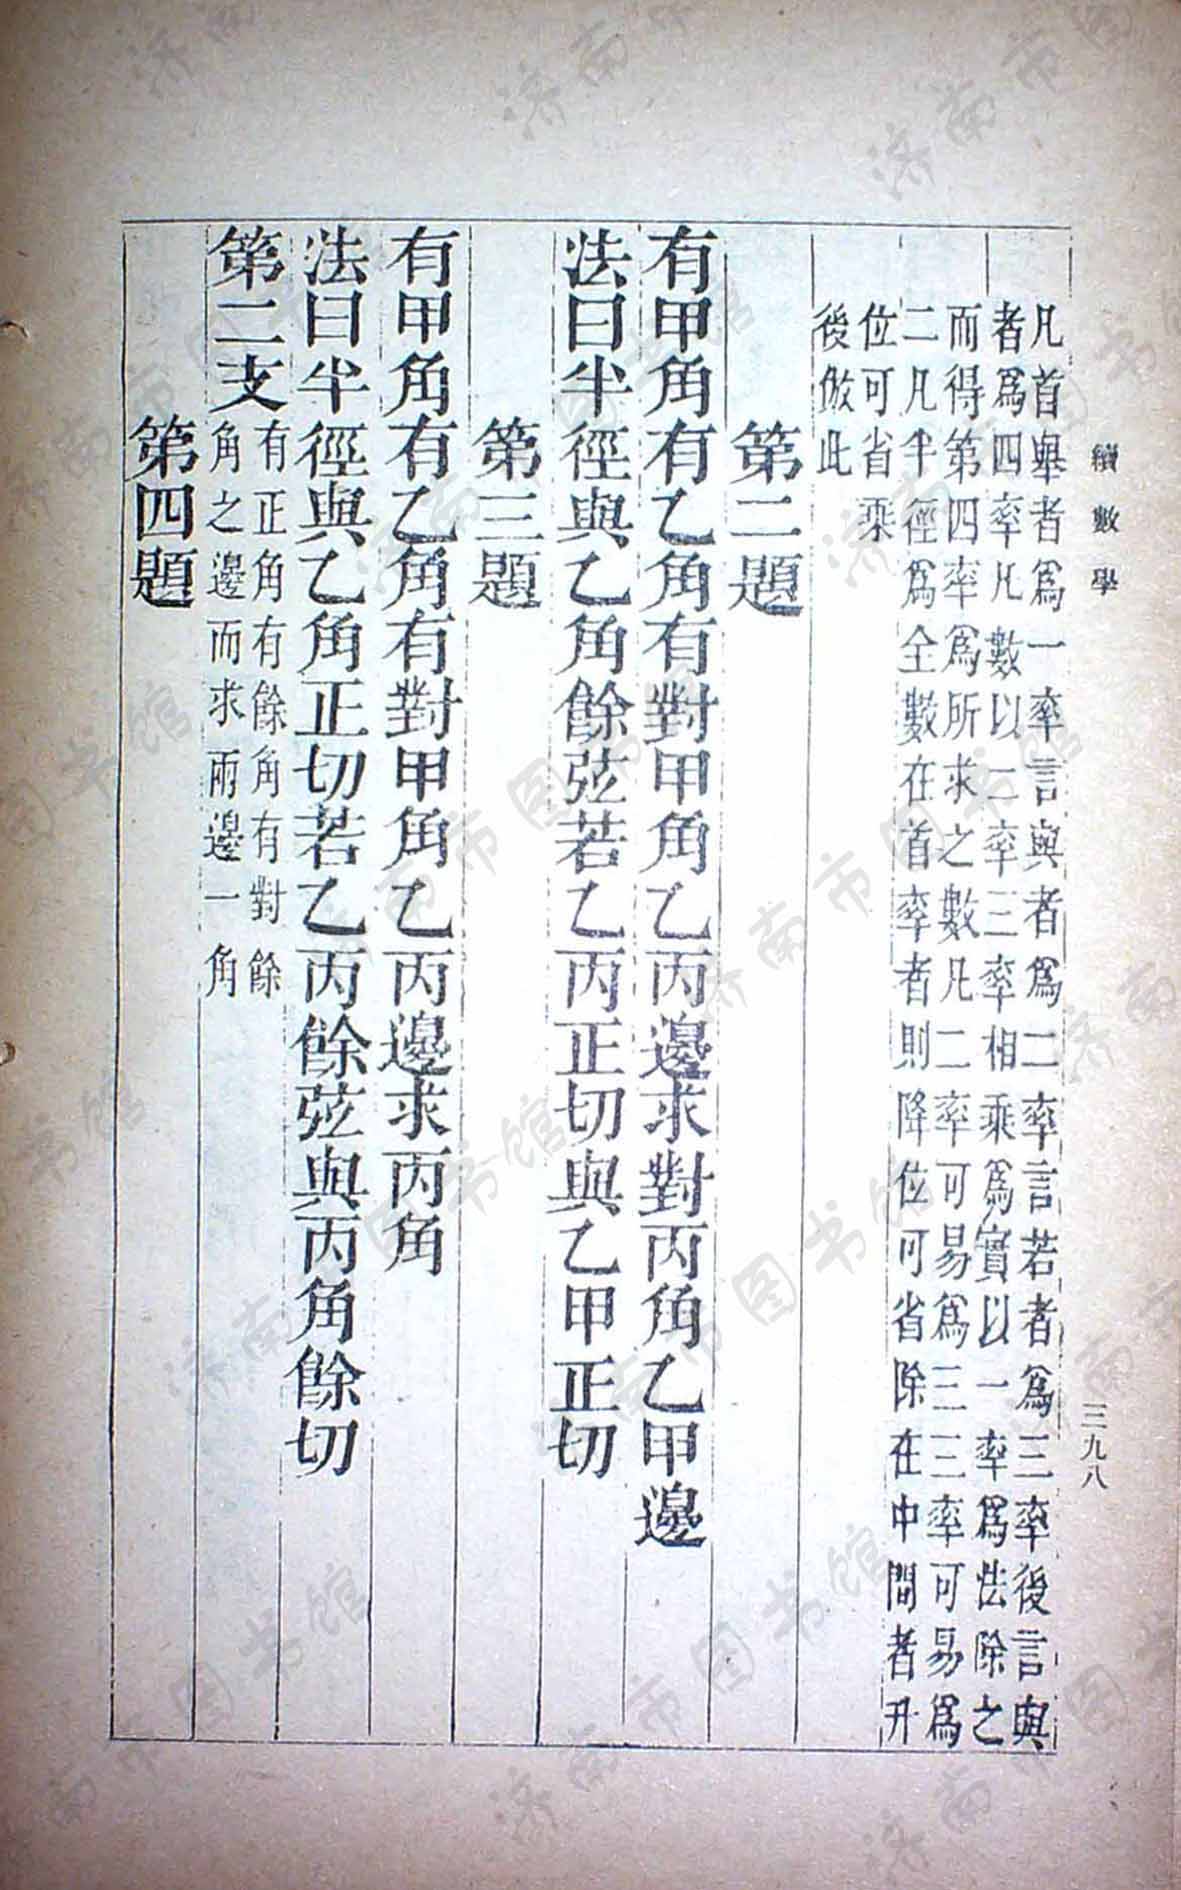 續數學
三九八
凡首舉者爲一率言與者爲二率言若者爲三率後言與
者爲四率凡數以二率三率相乘爲實以一率爲法除之
而得第四率爲所求之數凡二率可易爲三三率可易爲
二凡半徑爲全數在首率者則降位可省除在中間者升
位可省乘
後倣此
第二題
有甲角有乙角有對甲角乙丙邊求對丙角乙甲邊
法曰半徑與乙角餘弦若乙丙正切與乙甲正切
第三題
有甲角有乙角有對甲角乙丙邊求丙角
法曰半徑與乙角正切若乙丙餘弦與丙角餘切
第二支
有正角有餘角有對餘
角之邊而求兩邊一角
第四題
济南市图书馆